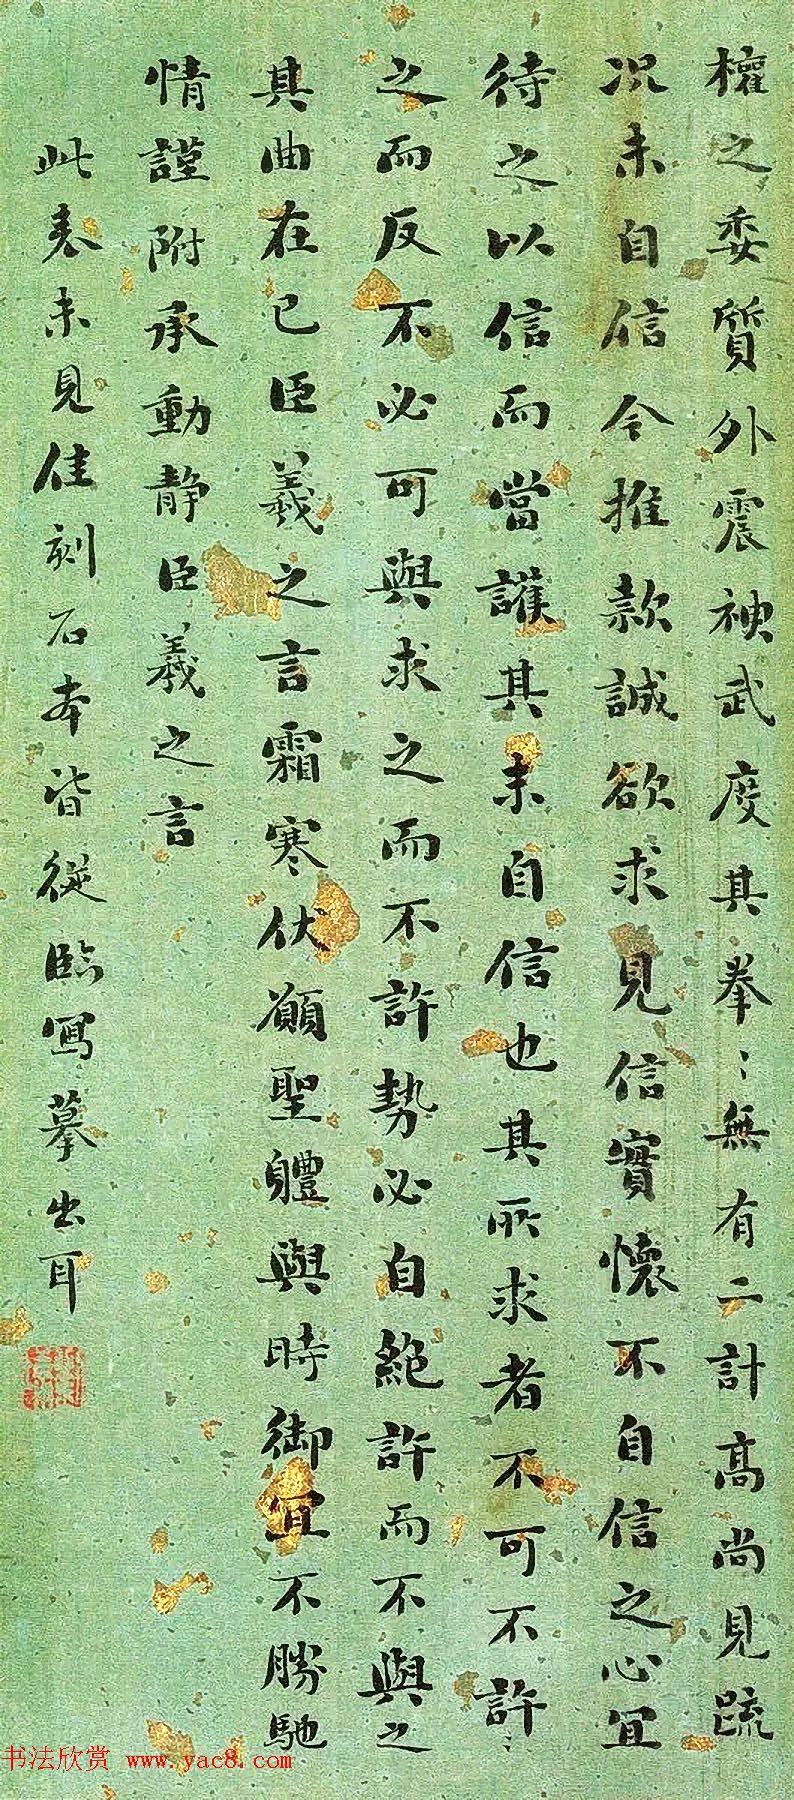 權之委質外震神武度其拳〻無有二計高尚見疏
况未自信今推款誠欲求見信實懷不自信之心宜
待之以信而當護其未自信也其所求者不可不許〻
之而反不必可與求之而不許勢必自絕許而不與之
其曲在已臣羲之言霜寒伏願聖體與時御宜不勝馳
情謹附承動靜臣羲之言
此表未見佳刻石本皆從臨寫摹出耳
书法欣赏 www.yac8.com